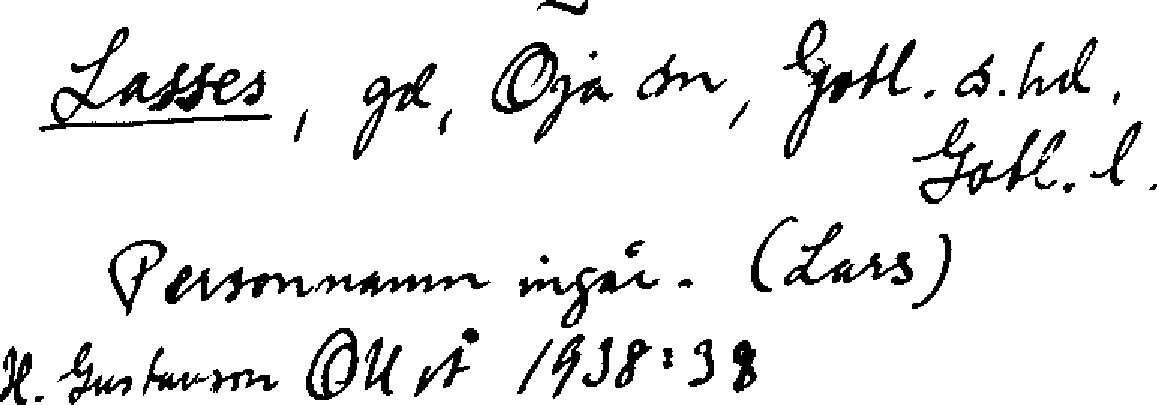 Lasses, gd, Öja sn, Gotl. s. hd,
Gotl. l.
Personnamn ingår. (Lars)
H. Gustavson OU st 1938:38